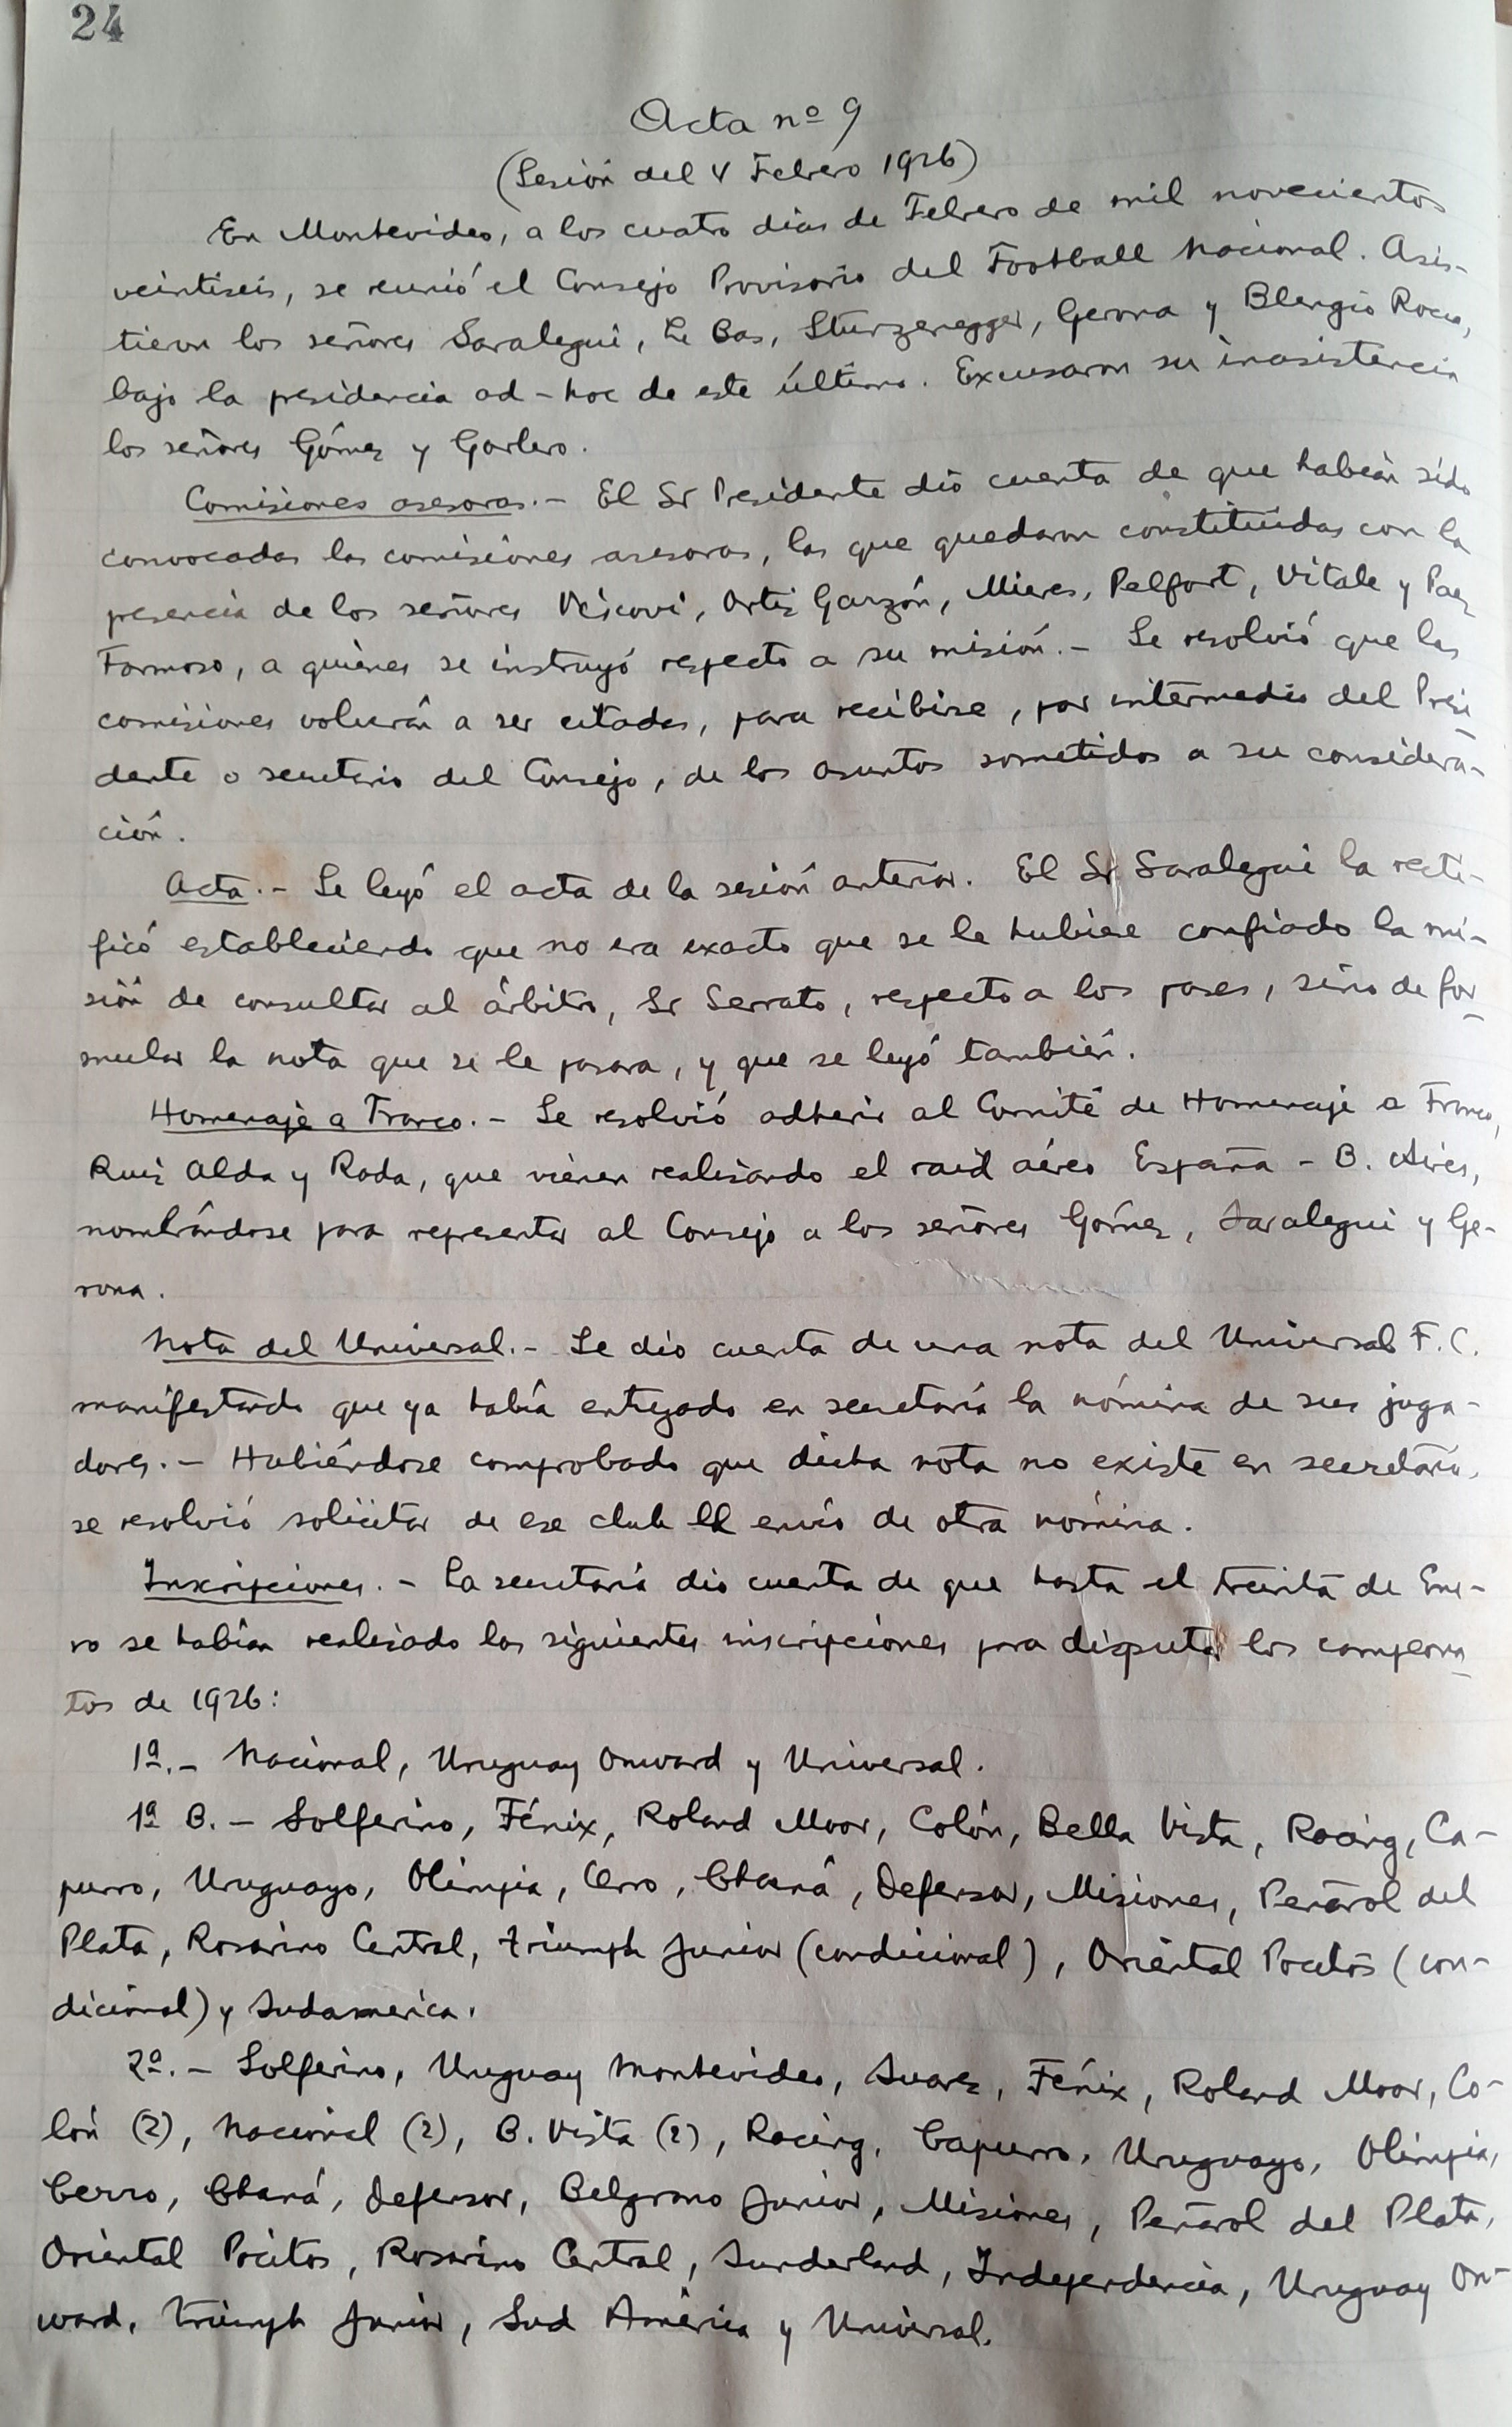 24
Acta nº 9
(Sesión del 4 Febrero 1926)
En Montevideo, a los cuatro días de Febrero de mil novecientos
veintiseis, se reunió el Consejo Provisorio del Football Nacional. Asis-
tieron los señores Saralegui, Le Bas, Sturzenegger, Gerona y Blengio Rocca,
bajo la presidencia ad-hoc de este último. Excusaron su inasistencia
los señores Gómez y Garlero.
Comisiones asesoras.- El Sr Presidente dió cuenta de que habían sido
convocadas las comisiones asesoras, las que quedaron constituídas con la
presencia de los señores Véscovi, Ortiz Garzón, Mieres, Pelfort, Vitale y Paez
Formoso, a quienes se instruyó respecto a su misión.- Se resolvió que las
comisiones volverán a ser citadas, para recibirse, por intermedio del Presi
dente o secretario del Consejo, de los asuntos sometidos a su considera-
ción.
Acta.- Se leyó el acta de la sesión anterior. El Sr Saralegui la recti-
ficó estableciendo que no era exacto que se le hubiese confiado la mi-
sión de consultar al árbitro, Sr Serrato, respecto a los pases, sino de for
mular la nota que se le pasara, y que se leyó también.
Homenaje a Franco.- Se resolvió adherir al Comité de Homenaje a Franco,
Ruiz Alda y Rada, que vienen realizando el raid aéreo España - B. Aires,
nombrándose para representar al Consejo a los señores Gómez, Saralegui y Ge-
rona.
Nota del Universal.- Se dió cuenta de una nota del Universal F.C.
manifestando que ya había entregado en secretaría la nómina de sus juga-
dores.- Habiéndose comprobado que dicha nota no existe en secretaría,
se resolvió solicitar de ese club el envío de otra nómina.
Inscripciones.- La secretaría dió cuenta de que hasta el treinta de Ene-
ro se habían realizado las siguientes inscripciones para disputar los campeona
tos de 1926:
1ª.- Nacional, Uruguay Onward y Universal.
1ª B.- Solferino, Fénix, Roland Moor, Colón, Bella Vista, Racing, Ca-
purro, Uruguayo, Olimpia, Cerro, Charrá, Defensor, Misiones, Peñarol del
Plata, Rosarino Central, Triumph Junior (condicional), Oriental Pocitos (con-
dicional) y Sudamerica.
2ª.- Solferino, Uruguay Montevideo, Suarez, Fénix, Roland Moor, Co-
lón (2), Nacional (2), B. Vista (2), Racing, Capurro, Uruguayo, Olimpia,
Cerro, Charrá, Defensor, Belgrano Junior, Misiones, Peñarol del Plata,
Oriental Pocitos, Rosarino Central, Sunderland, Independencia, Uruguay On-
ward, Triumph Junior, Sud América y Universal.